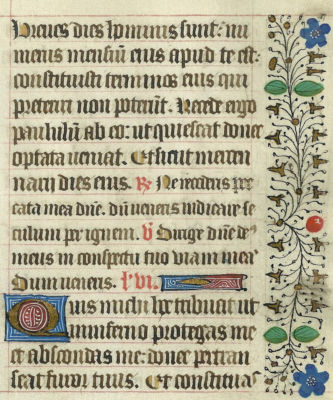 Breues dies hominis sunt: nu
merus mensiū eius apud te est:
constituisti terminos eius qui
preteriri non poterūt. Recede ergo
paululū ab eo: ut quiescat donec
optata ueniat. Et sicut mercen
narij dies eius. R Ne recorderis pec
cata mea dñe. dū ueneris iudicare se
culum per ignem. V Dirige dñe de
meus in conspectu tuo uiam mea
Dum ueneris. l' vi.
Quis michi hoc tribuat ut
in inferno protegas me
et abscondas me: donec pertran
seat furor tuus. Et constituas